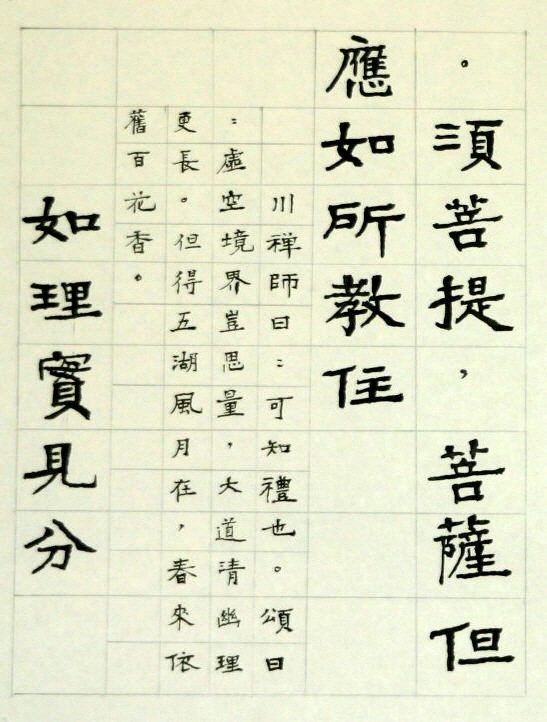 。須菩提，菩薩但
應如所教住
川禅師曰：可知禮也。頌曰
：虛空境界豈思量，大道清幽理
更長。但得五湖風月在，春來依
舊百花香。
如理實見分